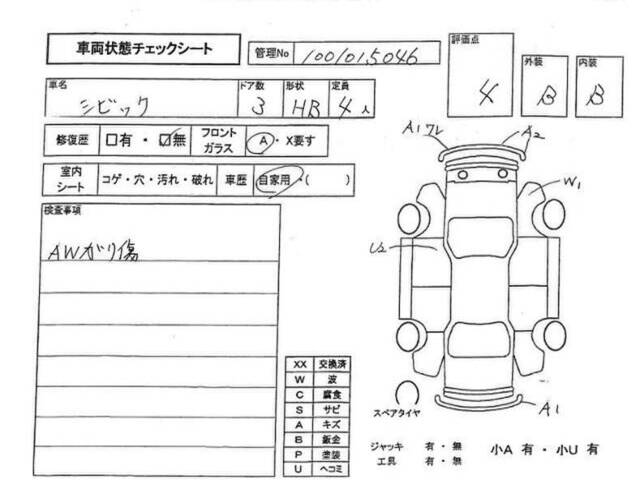 車両状態チェックシート
管理No 1001015046
評価点 4
外装 B
内装 B
車名 シビック
ドア数 3
形状 HB
定員 4人
修復歴 □有・☑無
フロントガラス A・X要す
室内シート コゲ・穴・汚れ・破れ
車歴 自家用・( )
検査事項
AWガリ傷
A1ワレ
A2
W1
U2
A1
スペアタイヤ
XX 交換済
W 波
C 腐食
S サビ
A キズ
B 鈑金
P 塗装
U ヘコミ
ジャッキ 有・無
工具 有・無
小A 有・小U 有